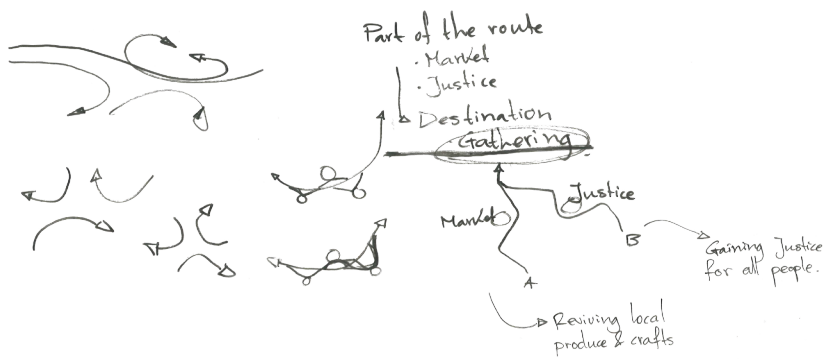 Part of the route
· Market
· Justice
Destination
· Gathering
Justice
Market
B
Gaining Justice
for all people.
A
Reviving local
produce & crafts